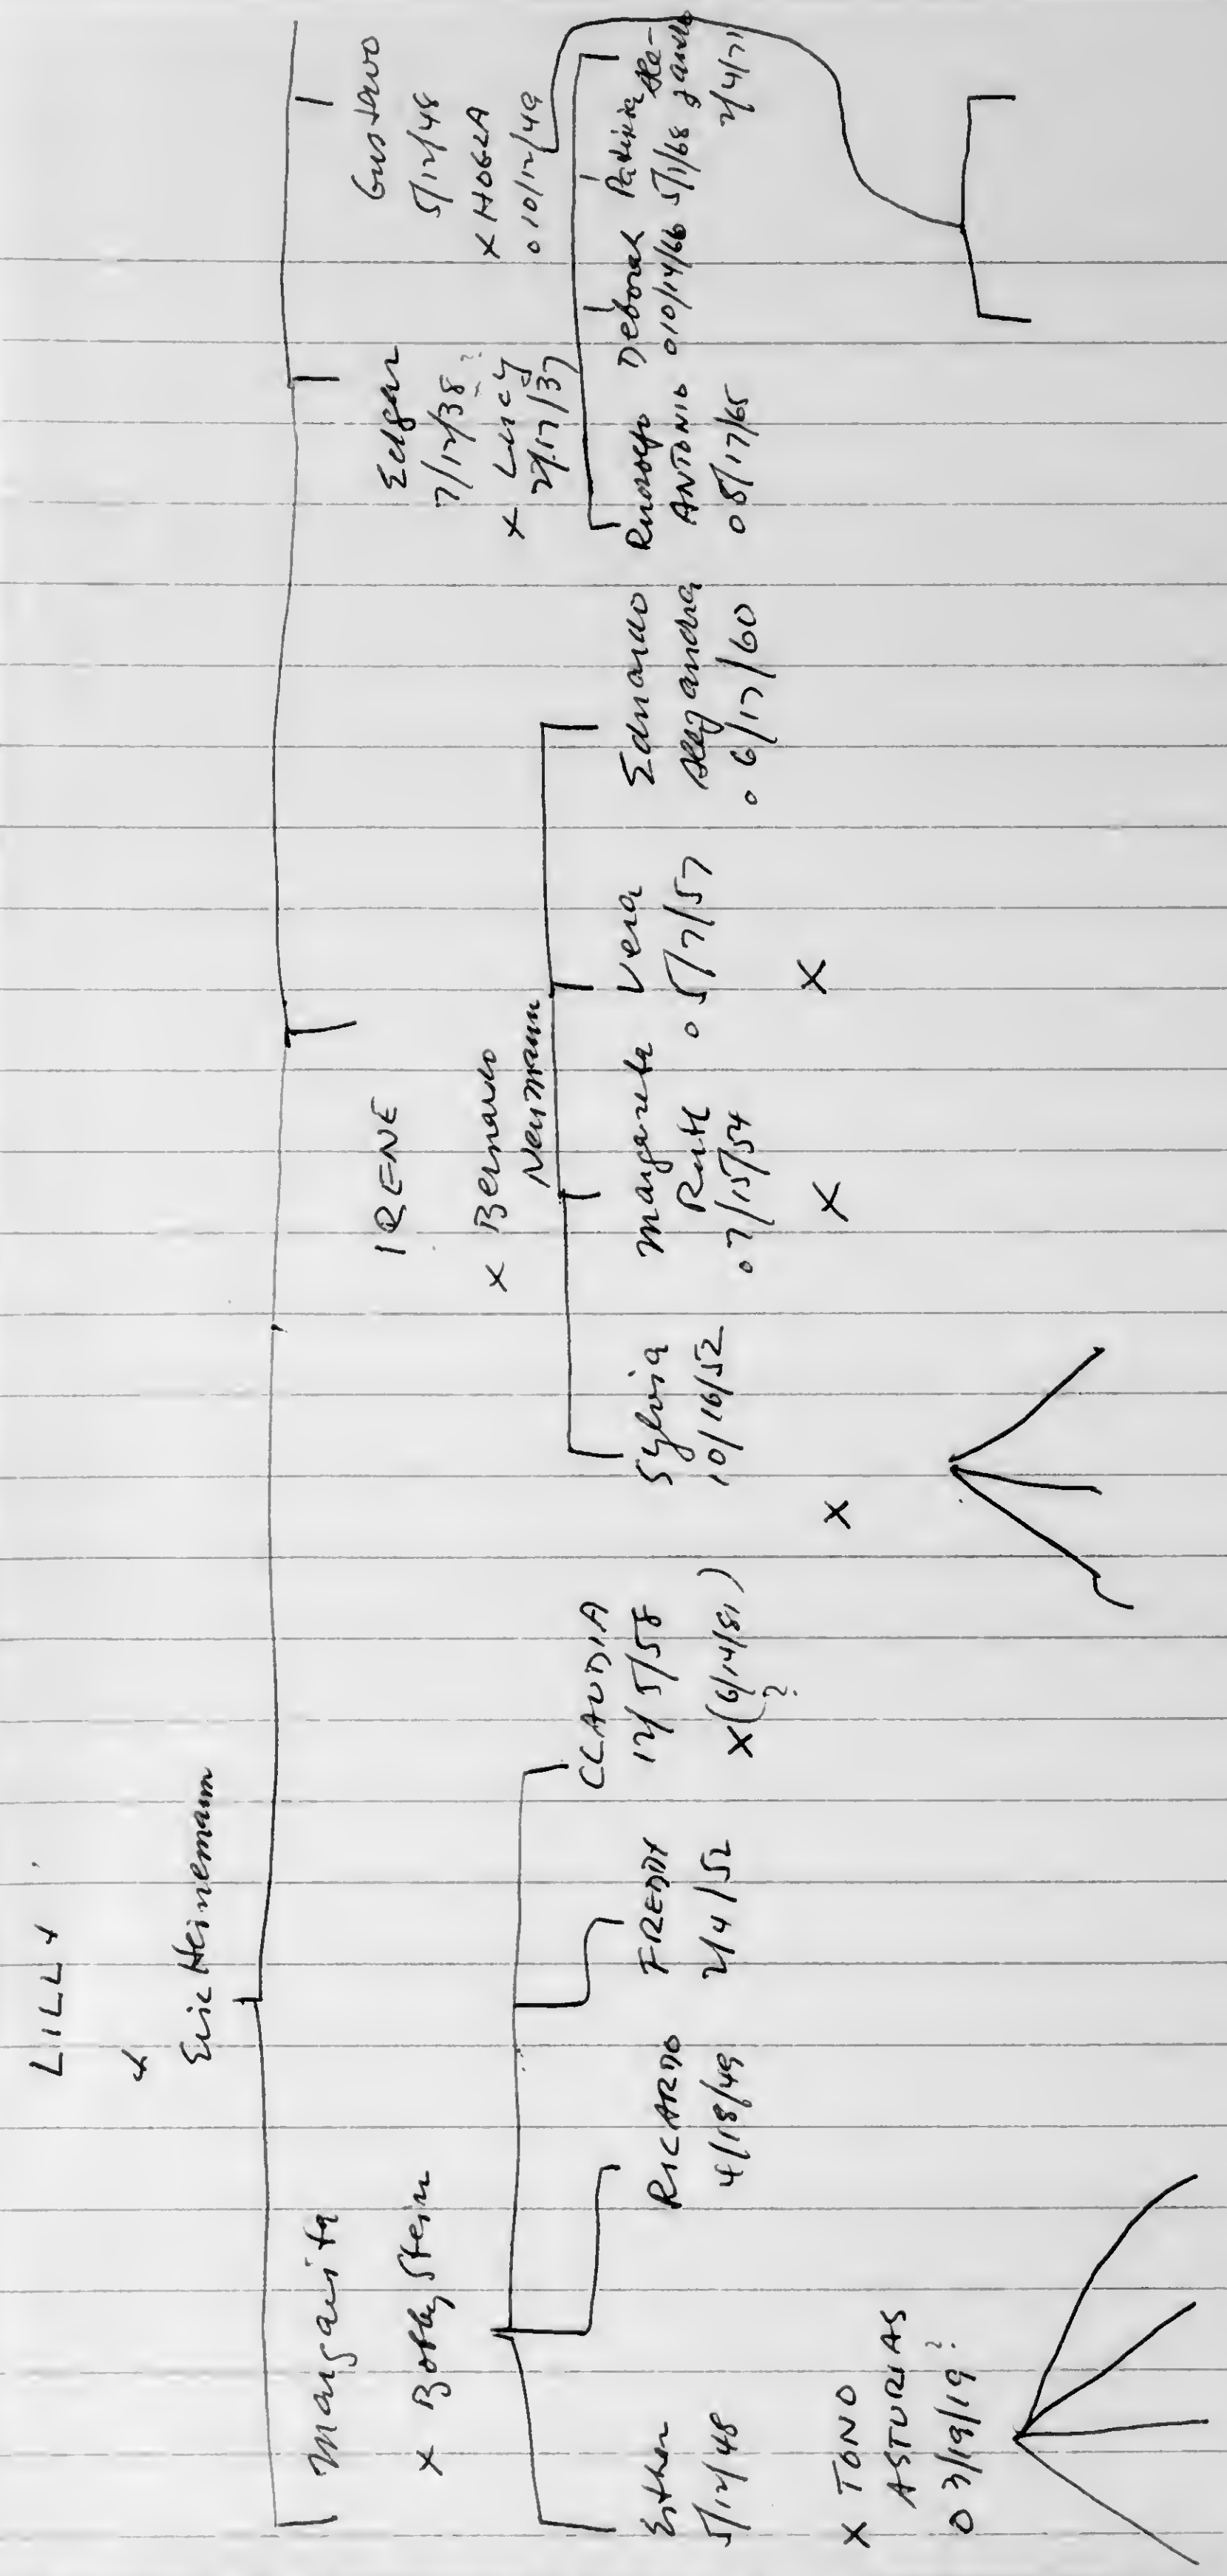 LILLY
&
Eric Heinemann
Margarita
x Bobby Stein
Esther
5/12/48
x TONO
ASTURIAS
o 3/19/19?
RICARDO
4/18/49
FREDDY
2/4/52
CLAUDIA
12/5/58
x (6/14/81)
?
IRENE
x Bernardo
Neumann
Sylvia
10/16/52
x
Margareta
Ruth
o 7/15/54
x
Vera
o 5/7/57
x
Eduardo
Alejandro
o 6/17/60
Edgar
7/12/38?
x Lucy
2/17/37
Rudolfo
ANTONIO
o 8/17/65
Deborah
o 10/14/66
Patricia
5/1/68
Ale-
jandro
2/4/71
Gustavo
5/12/48
x HOGLA
o 10/12/49